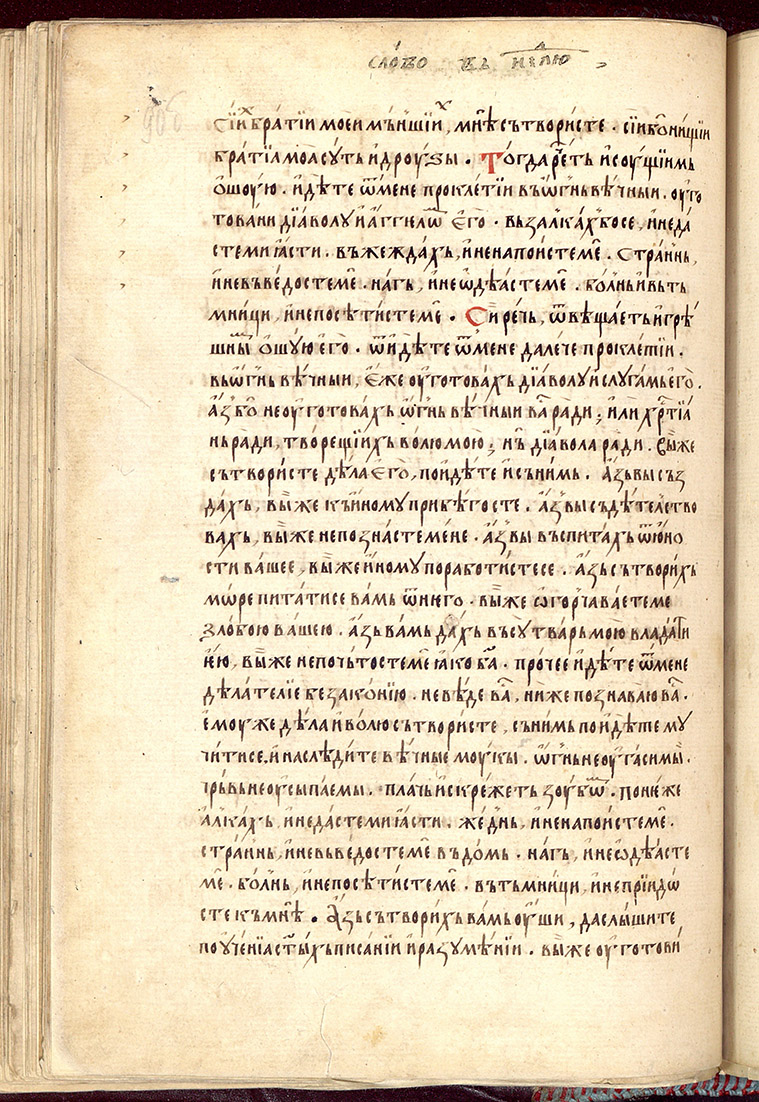 слово въ н҃лю
сїих братїи моеи мъншїих, мнѣ сътвористе. сїи бо нищїи
братїа моа суть и дроуѕы. Тогда рѐть и соущїимь
ошоую. идѣте ѿ мене проклетїи въ ѡгнь вѣчныи. оуго
товани дїаволу и аггелѡм его. възалках бо се, и не да
сте ми ꙗсти. въжеждахъ, и не напоисте мѐ. странь,
и не въведосте мѐ. нагь, и не ѡдѣасте мѐ. болнь и вь ть
мници, и не посѣтисте мѐ. Сирѣчь, ѿвѣщаеть и грѣ
шным ошую его. ѿидѣте ѿ мене далече проклетїи.
вь ѡгнь вѣчныи, еже оуготовахъ дїаволу и слугамь его.
аз бо не оуготовахъ ѡгнь вѣчныи ва̀ ради; или хр҃тїа
нь ради, творещїихъ волю мою; нъ дїавола ради. егѡже
сътвористе дѣла его, поидѣте и съ нимь. азь вы съз
дахъ, вы же къ иному прибѣгосте. аз вы съдѣтелство
вахъ, вы же не познасте мене. аз вы въспитахъ ѿ юно
сти вашее, вы же иному поработисте се. азь сътворихъ
море питатисе вамь ѿ него. вы же ѡгорчаваете ме
злобою вашею. азь вамь дахъ въсу тварь мою владати
ею, вы же не почьтосте мѐ ꙗко ба҃. прочее идѣте ѿ мене
дѣлателїе безаконїю. не вѣде ва̀, ниже познаваю ва̀.
емоуже дѣла и волю сътвористе, съ нимь поидѣте му
читисе. и наслѣдите вѣчные моукы. ѡгнь неоугасимы.
чрьвь неоусыпаемы. плачь и скрежеть зоубѡм. понеже
алкахъ, и не дасте ми ꙗсти. жедьнь, и не напоисте мѐ.
страннь, и не въведосте мѐ въ домь. нагь, и не ѡдѣасте
мѐ. болнь, и не посѣтисте мѐ. въ тьмници, и не прїидо
сте къ мнѣ. Азь сътворихъ вамь оуши, да слышите
поученїа ст҃ыхъ писанїи и разумѣнїи. вы же оуготови